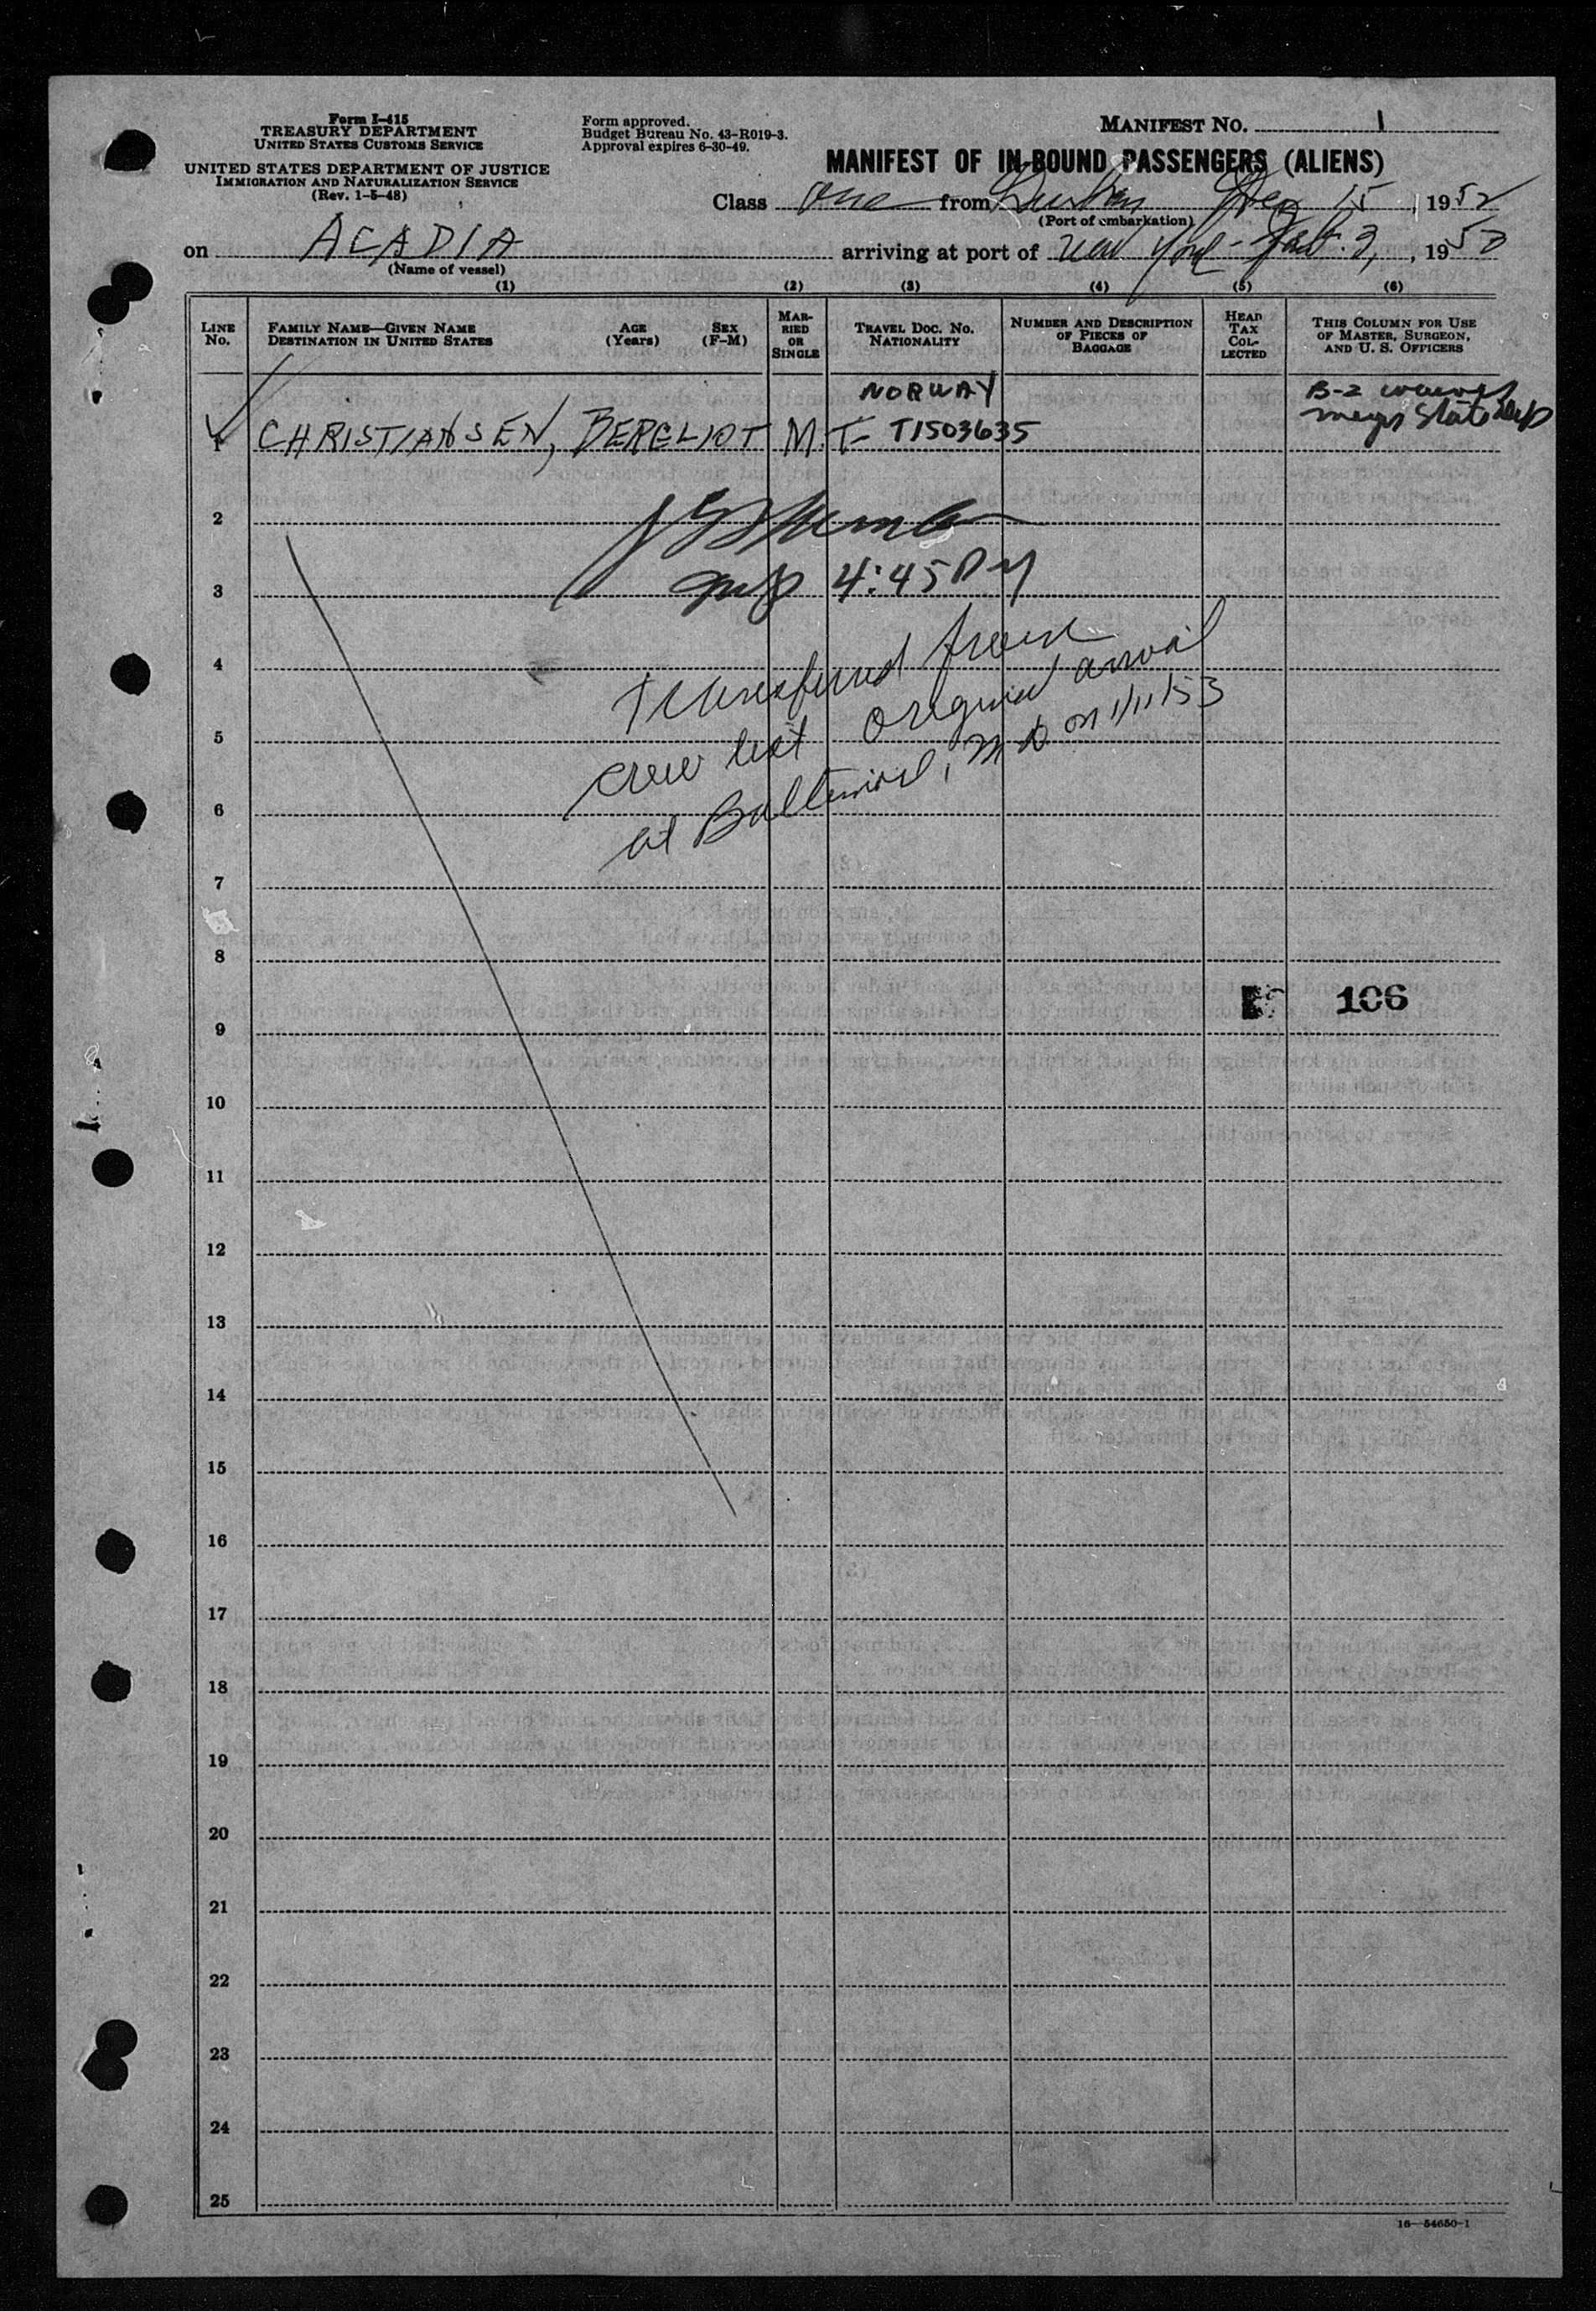 Form I-415
TREASURY DEPARTMENT
UNITED STATES CUSTOMS SERVICE
UNITED STATES DEPARTMENT OF JUSTICE
IMMIGRATION AND NATURALIZATION SERVICE
(Rev. 1-5-48)
Form approved.
Budget Bureau No. 43-R019-3.
Approval expires 6-30-49.
MANIFEST NO. 1
MANIFEST OF IN-BOUND PASSENGERS (ALIENS)
Class one from Durban Dec 15, 1952
(Port of embarkation)
on ACADIA arriving at port of New York - Feb. 3, 1953
(Name of vessel)
(1) (2) (3) (4) (5) (6)
LINE NO.
FAMILY NAME—GIVEN NAME
DESTINATION IN UNITED STATES
AGE (Years)
SEX (F-M)
MARRIED OR SINGLE
TRAVEL DOC. NO.
NATIONALITY
NUMBER AND DESCRIPTION OF PIECES OF BAGGAGE
HEAD TAX COLLECTED
THIS COLUMN FOR USE OF MASTER, SURGEON, AND U. S. OFFICERS
NORWAY
B-2
State Dep
1 CHRISTIANSEN, BERGLIOT M. T- T1503635
2
3 4:45 PM
4 Transferred from
5 crew list original arrival
6 at Baltimore, Md on 1/11/53
7
8
106
9
10
11
12
13
14
15
16
17
18
19
20
21
22
23
24
25
16—54650-1